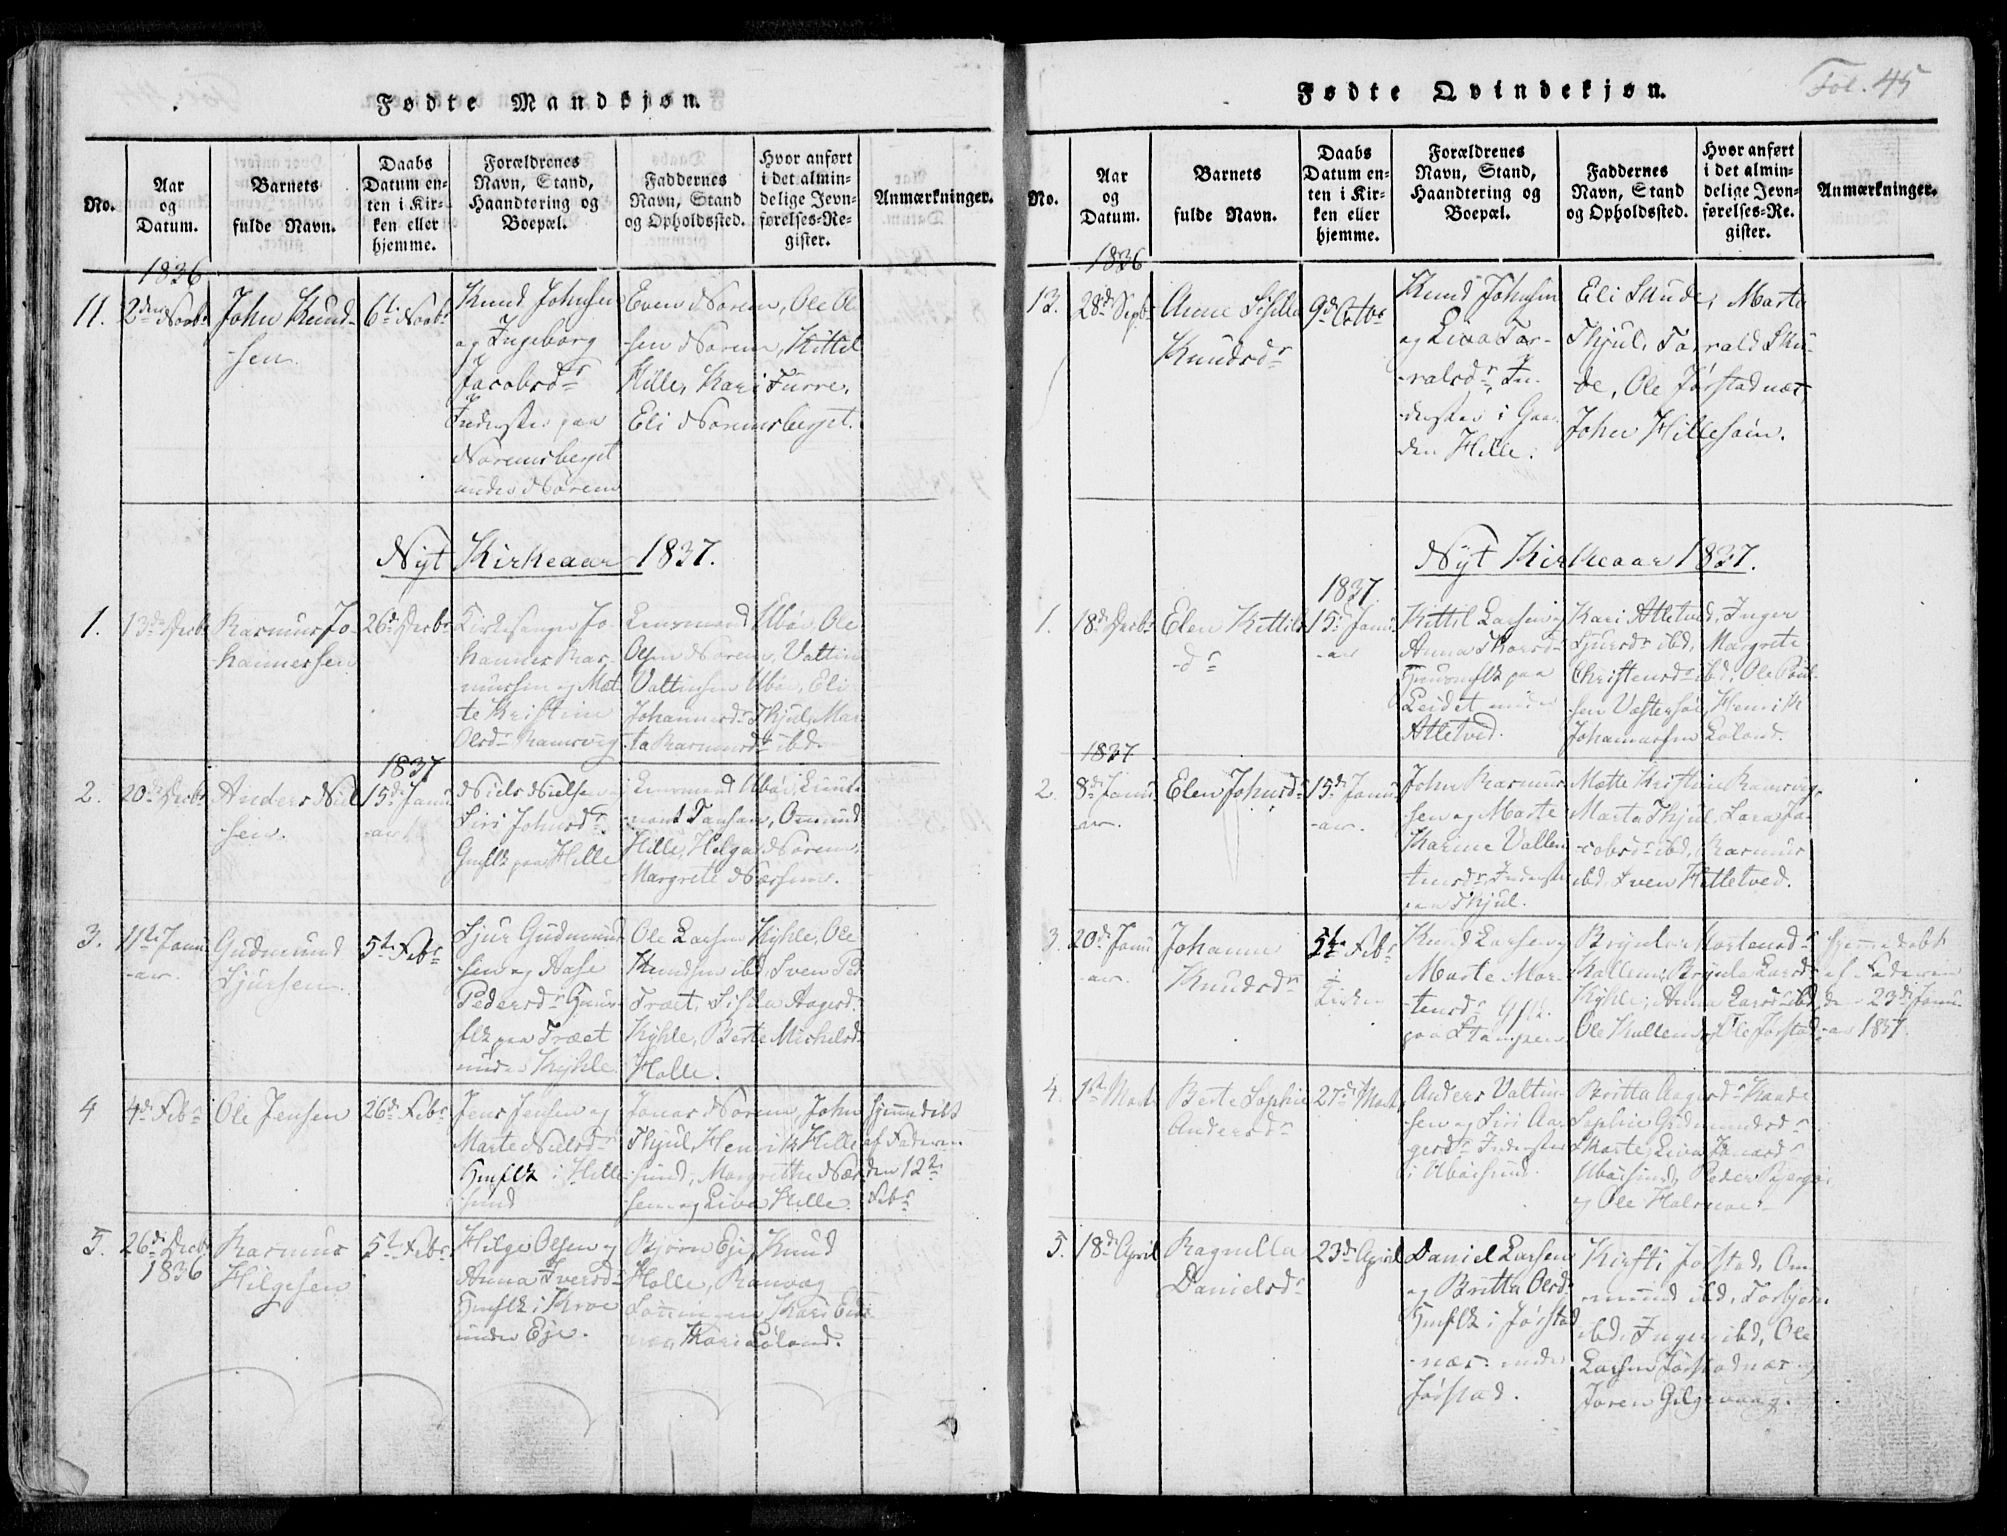 Fødte Mandkjøn.
No.
Aar
og
Datum.
Barnets
fulde Navn.
Daabs
Datum en-
ten i Kir-
ken eller
hjemme.
Forældrenes
Navn, Stand,
Haandtering og
Boepæl.
Faddernes
Navn, Stand
og Opholdssted.
Hvor anført
i det almin-
delige Jevn-
førelses-Re-
gister.
Anmærkninger.
1836
11.
2den Novbr
John Knud-
sen.
6te Novbr
Knud Johnsen
og Ingeborg
Jacobsdr
Inderster paa
Noremsberget
under Norem
Even Norem, Ole Ol-
sen Norem, Kittel
Hille, Kari Furre,
Eli Noremsberget.
Nyt Kirkeaar 1837.
1.
13de Decbr
Rasmus Jo-
hannessen
26de Decbr
Kirkesanger Jo-
hannes Ras-
mussen og Met-
te Kristine
Olsdr Ramsvig
Lensmand Ubøe, Ole
Olsen Norem, Valtin
Valtinsen Ubøe, Eli
Johannesdr Skjul, Mar-
ta Rasmusdr ibd.
2.
20de Decbr
Anders Niel-
sen.
1837
15de Janu-
ar
Niels Nielsen og
Siri Johnsdr
Gmflk paa Hille
Lensmand Ubøe, Lieut-
nant Tansen, Omund
Hille, Helga Norem,
Margrete Nærsem.
3.
11te Janu-
ar.
Gudmund
Sjursen.
5te Febr
Sjur Gudmund-
sen og Aase
Pedersdr Huus-
flk paa Træet
under Kyhle
Ole Larsen Kyhle, Ole
Knudsen ibd, Sven
Træet, Kyhle, Berte Michelsdr
Halle.
4
4de Febr
Ole Jensen
26de Febr
Jens Jensen og
Marte Nielsdr
Hmflk i Hille-
sund
Jonas Norem, John
Skjul, Henrik Hille-
sund, Margrethe Nær-
sem og Liva Hille.
hjemmedøbt
af Faderen
den 12te
Febr
5.
26de Decbr
1836
Rasmus
Hilgesen
5te Febr.
Hilge Olsen og
Anna Iversdr
Hmflk i Kroe
under Eje.
Bjørn Eje, Knud
Halle, Ranvag
Kari Løland.
Fol. 45
Fødte Qvindekjøn.
No.
Aar
og
Datum.
Barnets
fulde Navn.
Daabs
Datum en-
ten i Kir-
ken eller
hjemme.
Forældrenes
Navn, Stand,
Haandtering og
Boepæl.
Faddernes
Navn, Stand
og Opholdssted.
Hvor anført
i det almin-
delige Jevn-
førelses-Re-
gister.
Anmærkninger.
1836
13.
28de Septbr
Anne Sisilla
Knudsdr
9de Octbr
Knud Johnsen
og Liva Tar-
ralsdr, In-
derster i Gaar-
den Hille.
Eli Skude, Marta
Skjul, Tarald Sku-
de, Ole Jørstadnæs
John Hillesøin.
Nyt Kirkeaar 1837.
1.
18de Decbr
Elen Kittils-
dr
1837.
15de Janu-
ar
Kittil Larsen og
Anna
Huusmflk paa
Leidet under
Atletved.
Kari Atletved, Inger
Sjursdr ibd, Margrete
Christensdr ibd, Ole Poul-
sen Vestersøe, Henrik
Johannessen Løland.
1837
2.
8de Janu-
ar.
Elen Johnsdr
15de Janu-
ar.
John Rasmus-
sen og Marte
Karine Vallen-
tinsdr, Inderster
paa Skjul.
Mette Kristine Ramsvig,
Marta Skjul, Lara Ja-
cobsdr ibd, Rasmus
ibd, Sven Hetletved.
3.
20de Janu-
ar.
Johanne
Knudsdr
5te Febr
i
Kirken
Knud Larsen og
Marte Mor-
tensdr Gflk
paa Stampen
Brynla Mortensdr
Kallem, Brynla Larsdr
Kyhle, Anna Larsdr ibd,
Ole Kallem og Ole Jørstad
hjemmedøbt
af Faderen
den 23de Janu-
ar 1837.
4.
1ste Marts
Berte Sophie
Andersdr
27de Marts
Anders Valtin-
sen og Siri Aa-
gesdr Inderster
i Ubøesund.
Britta Aagesdr Kaade
Sophie Gudmundsdr
Skarte, Liva Jonasdr
Ubøesund, Peder
og Ole Halsnæ.
5.
18de April
Ragnilla
Danielsdr
23de April
Daniel Larsen
og Britta Olsdr
Hmflk i Jørstad-
næs under
Jørstad.
Kirsti Jørstad, Om-
mund ibd, Torbjørn
ibd, Inger ibd, Ole
Larsen Jørstadnæs og
Joren Gilgevaag.